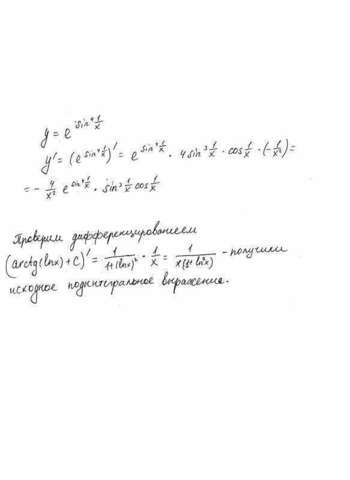 y = e^{sin^4 1/x}
y' = (e^{sin^4 1/x})' = e^{sin^4 1/x} · 4sin^3 1/x · cos 1/x · (-1/x²) =
= - 4/x² e^{sin^4 1/x} · sin^3 1/x cos 1/x
Проверим дифференцированием
(arctg(lnx)+C)' = 1/(1+(lnx)²) · 1/x = 1/(x(1+ln²x)) - получили
исходное подинтегральное выражение.